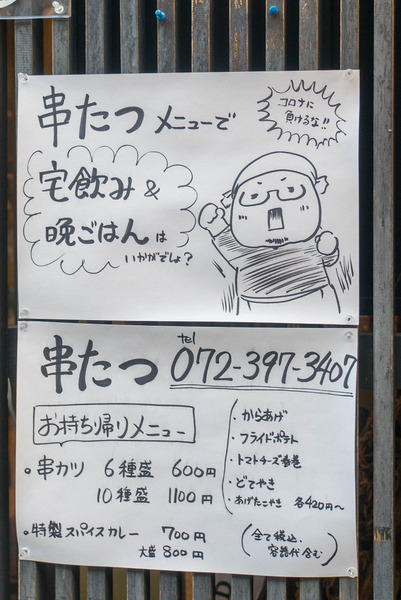 串たつメニューで
コロナに
負けるな!!
宅飲み&
晩ごはんは
いかがでしょ?
串たつ tel 072-397-3407
お持ち帰りメニュー
・串カツ 6種盛 600円
10種盛 1100円
・特製スパイスカレー 700円
大盛 800円
・からあげ
・フライドポテト
・トマトチーズ春巻
・どてやき
・あげたこやき 各420円~
(全て税込、
容器代含む)